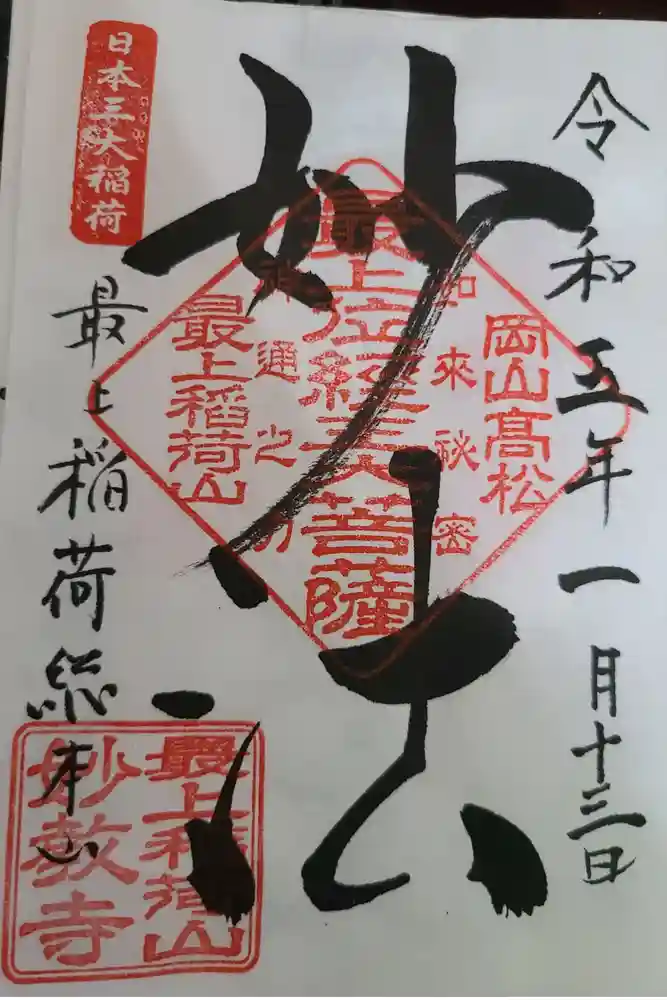 令和五年一月十三日
妙法
岡山高松
如來秘密
最上位経王大菩薩
神通之力
最上稲荷山
日本三大稲荷
最上稲荷総本山
最上稲荷山
妙教寺